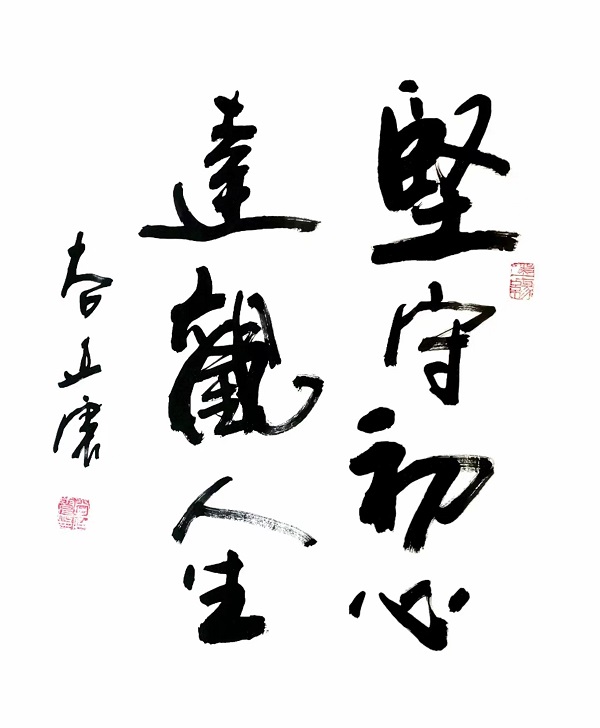 堅守初心
達觀人生